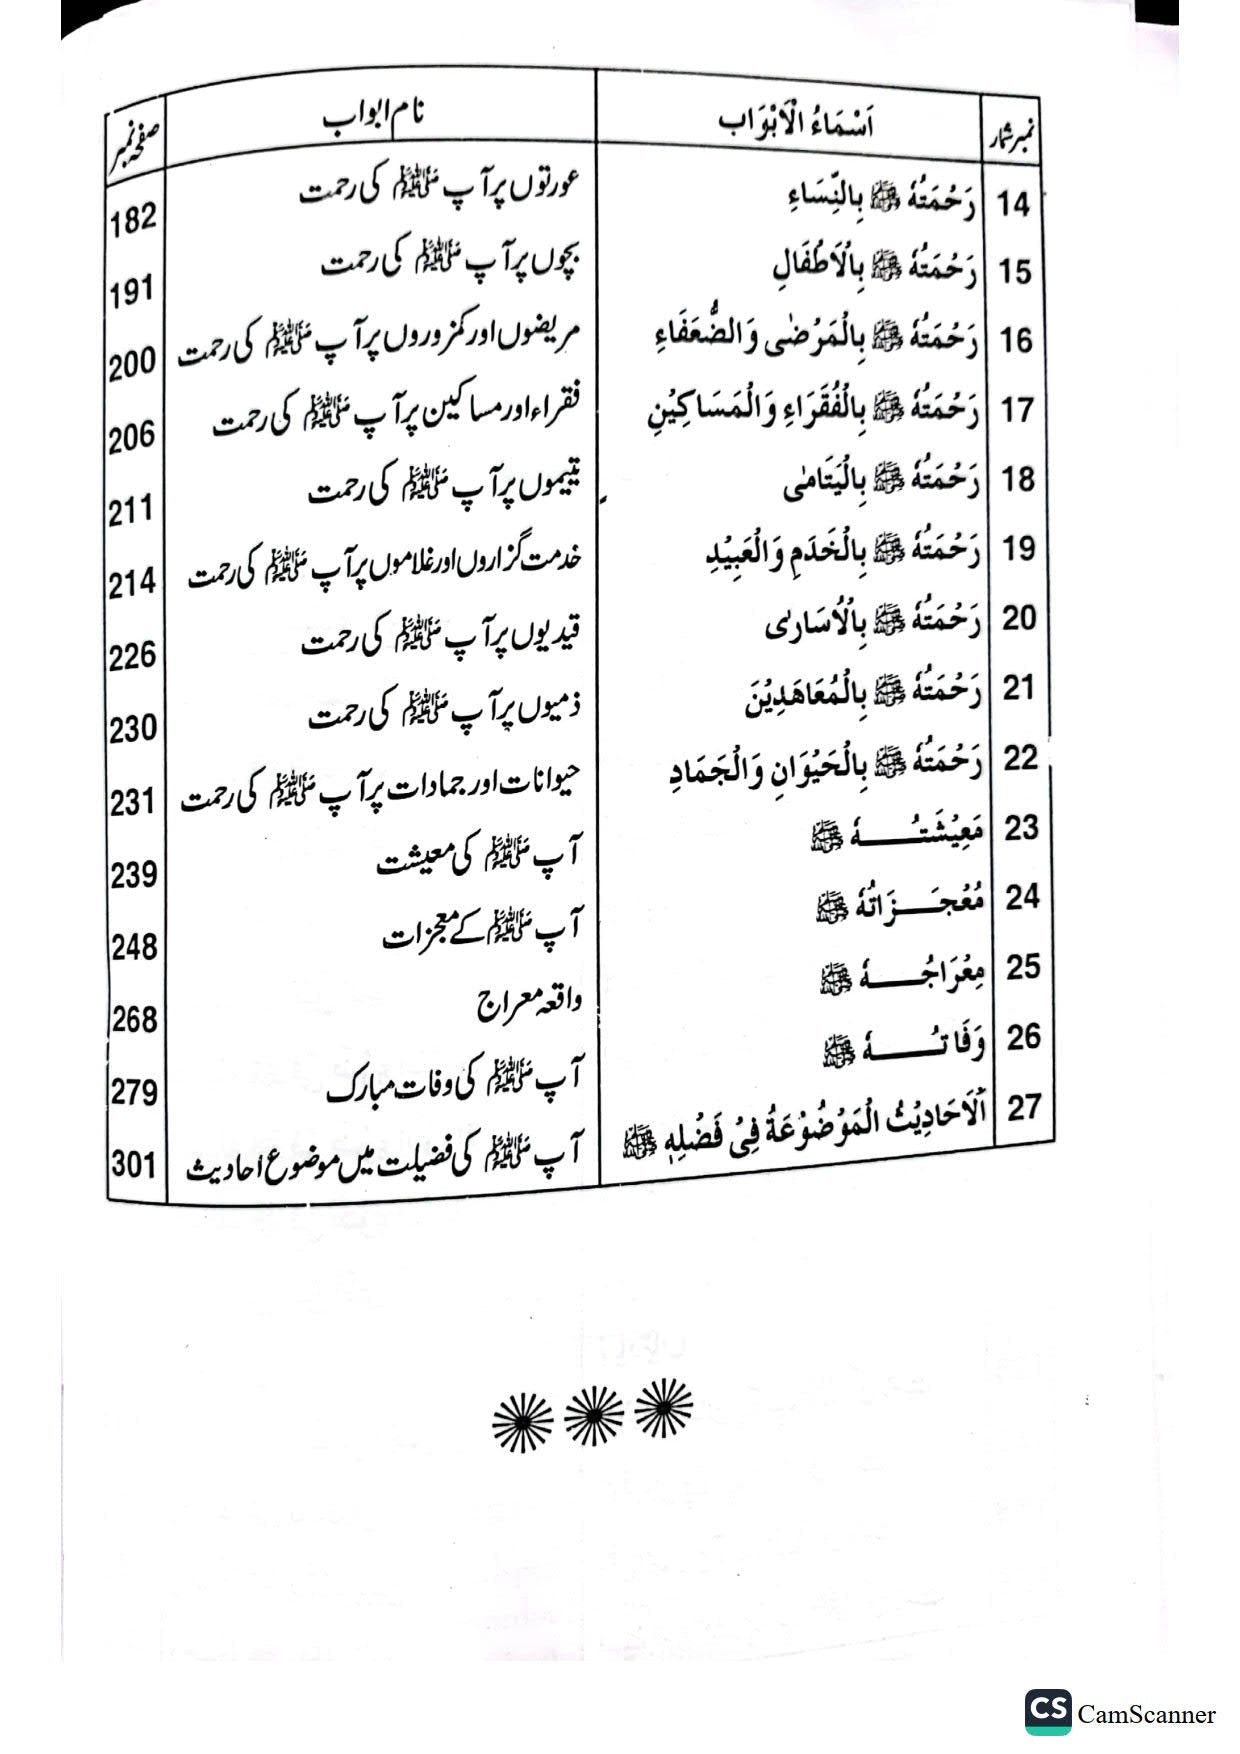 نمبر شمار اَسْمَاءُ الْاَبْوَاب نام ابواب صفحہ نمبر
14 رَحْمَتُهٗ ﷺ بِالنِّسَاءِ عورتوں پر آپ ﷺ کی رحمت 182
15 رَحْمَتُهٗ ﷺ بِالْاَطْفَالِ بچوں پر آپ ﷺ کی رحمت 191
16 رَحْمَتُهٗ ﷺ بِالْمَرْضٰى وَالضُّعَفَاءِ مریضوں اور کمزوروں پر آپ ﷺ کی رحمت 200
17 رَحْمَتُهٗ ﷺ بِالْفُقَرَاءِ وَالْمَسَاكِيْنِ فقراء اور مساکین پر آپ ﷺ کی رحمت 206
18 رَحْمَتُهٗ ﷺ بِالْيَتَامٰى یتیموں پر آپ ﷺ کی رحمت 211
19 رَحْمَتُهٗ ﷺ بِالْخَدَمِ وَالْعَبِيْدِ خدمت گزاروں اور غلاموں پر آپ ﷺ کی رحمت 214
20 رَحْمَتُهٗ ﷺ بِالْاُسَارٰى قیدیوں پر آپ ﷺ کی رحمت 226
21 رَحْمَتُهٗ ﷺ بِالْمُعَاهَدِيْنَ ذمیوں پر آپ ﷺ کی رحمت 230
22 رَحْمَتُهٗ ﷺ بِالْحَيْوَانِ وَالْجَمَادِ حیوانات اور جمادات پر آپ ﷺ کی رحمت 231
23 مَعِيْشَتُهٗ ﷺ آپ ﷺ کی معیشت 239
24 مُعْجَزَاتُهٗ ﷺ آپ ﷺ کے معجزات 248
25 مِعْرَاجُهٗ ﷺ واقعہ معراج 268
26 وَفَاتُهٗ ﷺ آپ ﷺ کی وفات مبارک 279
27 اَلْاَحَادِيْثُ الْمَوْضُوْعَةُ فِيْ فَضْلِهٖ ﷺ آپ ﷺ کی فضیلت میں موضوع احادیث 301
CS CamScanner